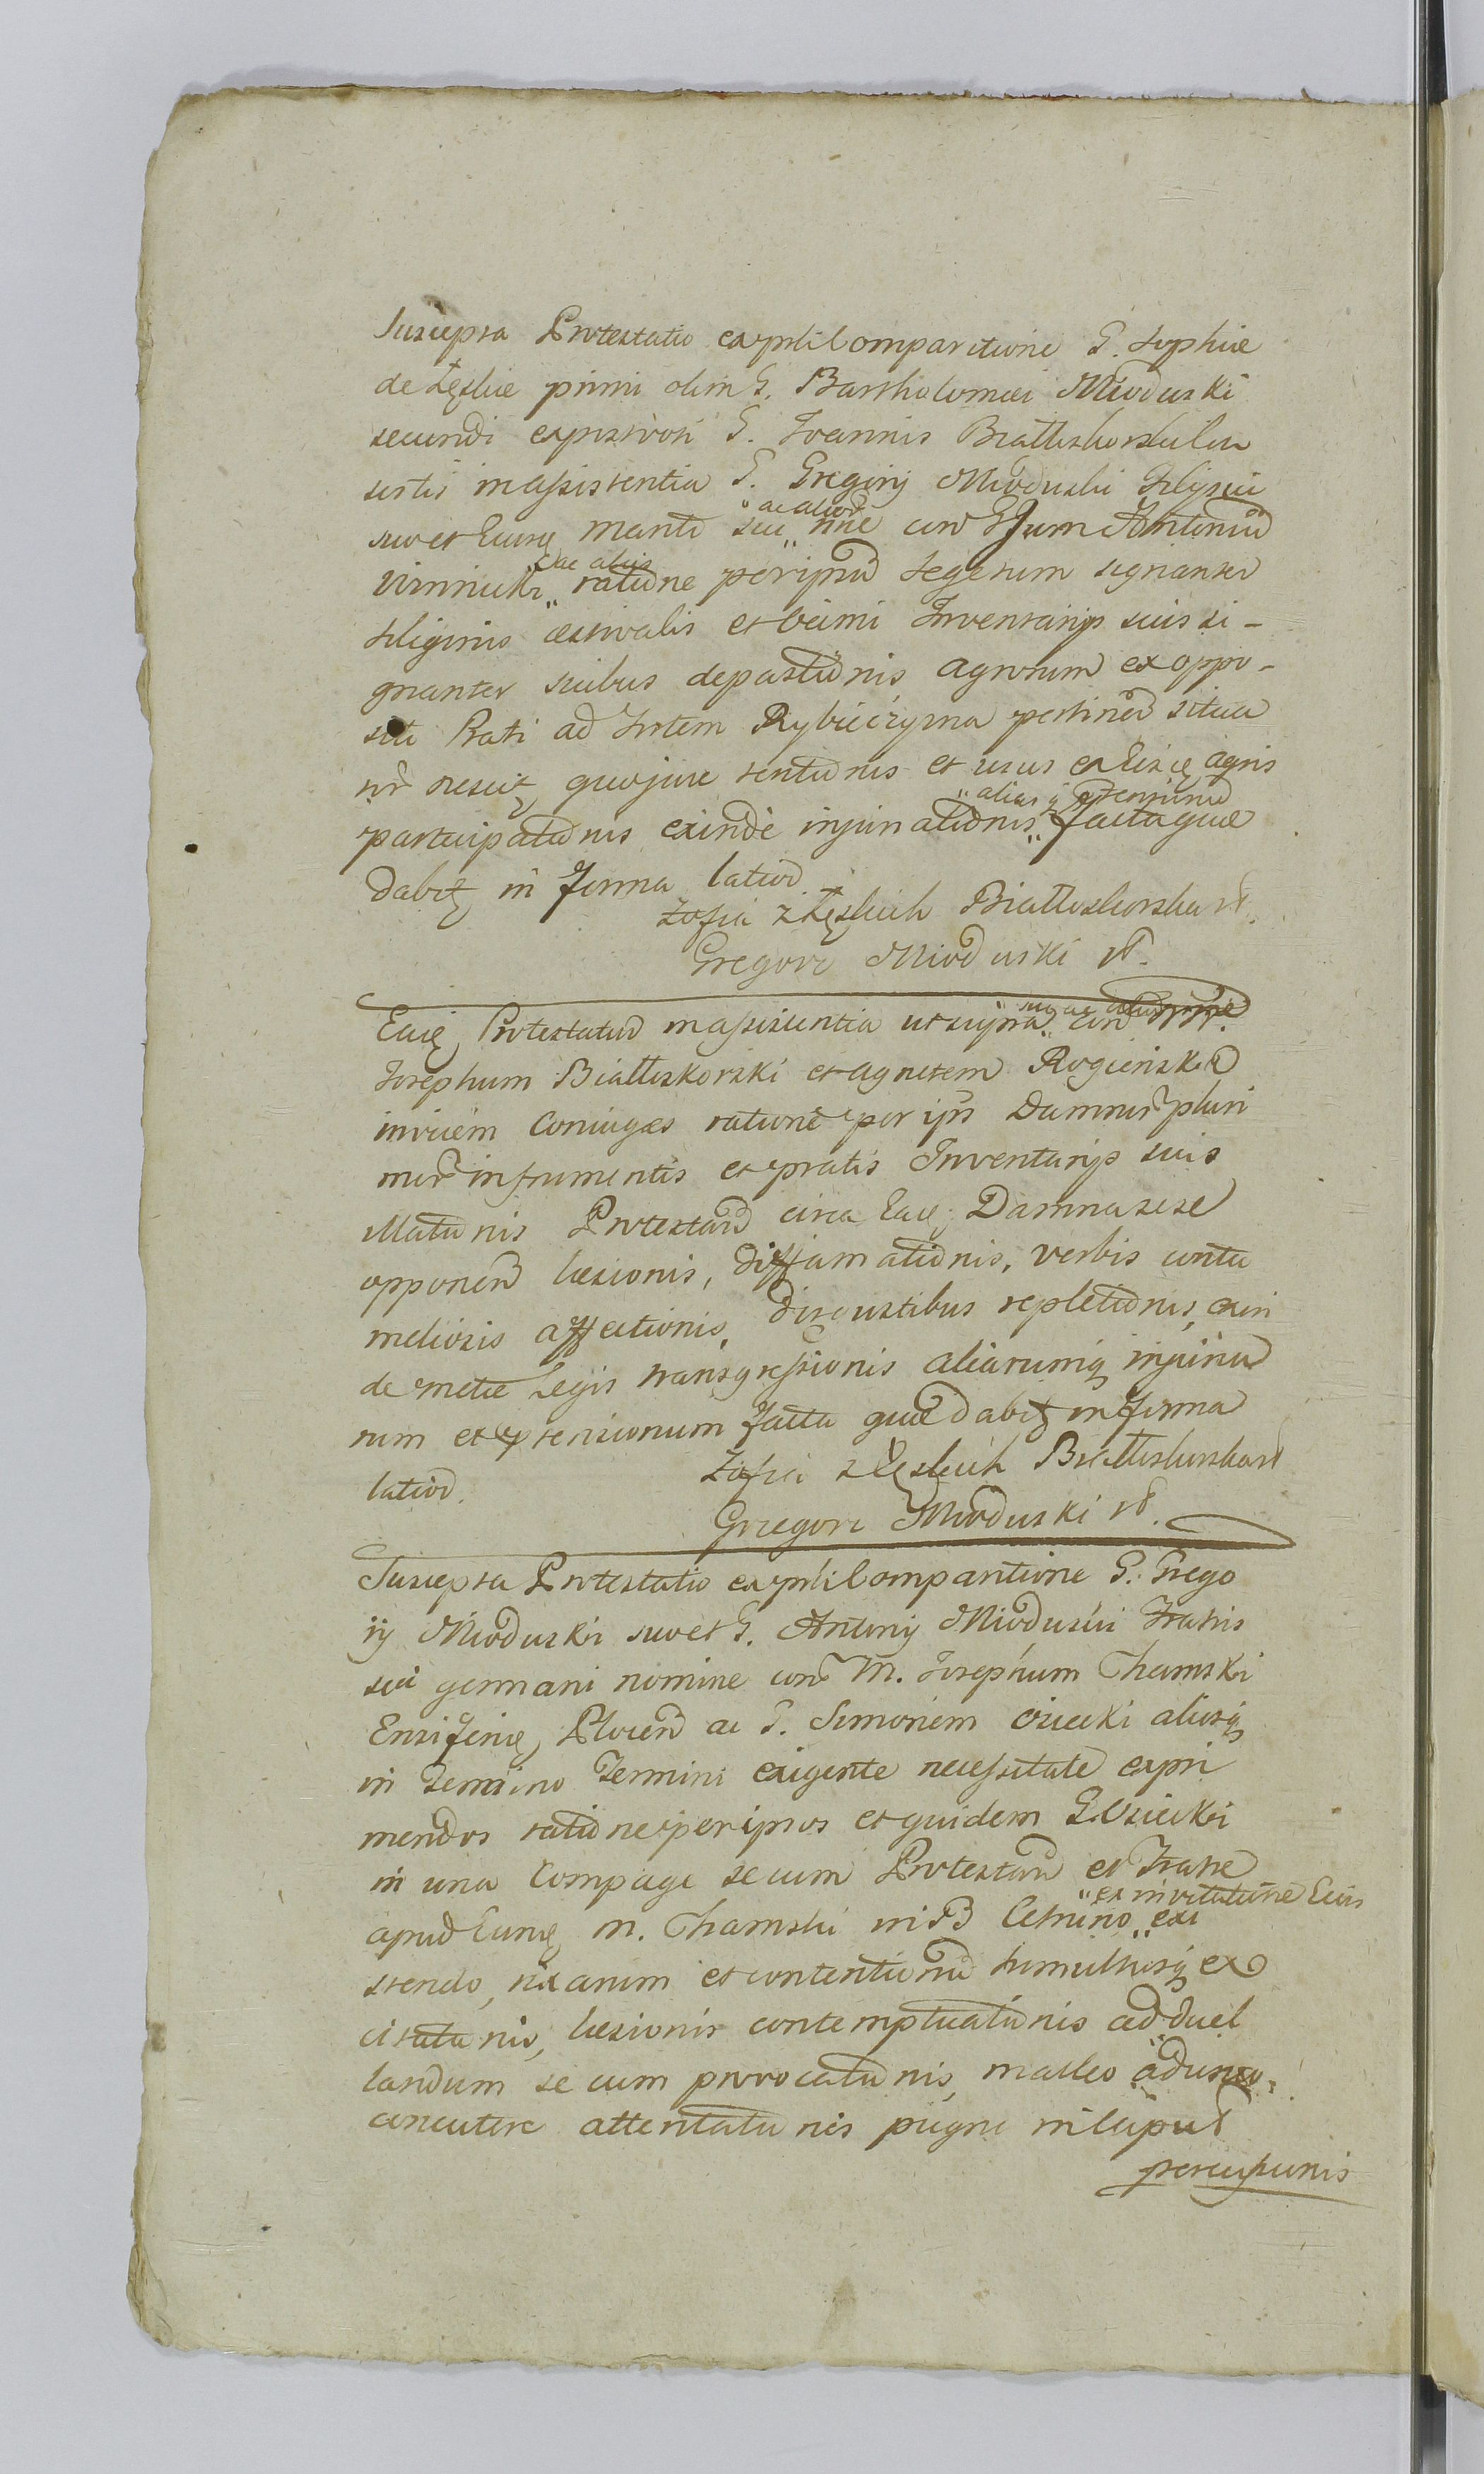 Suscepta Protestatio ex psli Comparitione G. Sophiæ
de Łęskie primi olim G. Bartholomæi Mioduski
secundi ex pst voti G. Joannis Białłoskorski Con
sortis in assistentia G. Gregorij Mioduski Filij sui
suo et Eiusq mariti sui "ac alior" nne con G Jum Antoniu
Winnicki "ac alijs" ratione per ipsu segetum signanter
siliginis æstivalis et Inventarijs suis si-
gnanter suibus depastionis agrorum ex oppo-
siti Prati ad Sortem Rybieczyzna pertinen situa
nescitq quo jure tentionis et usus ex agris
participationis exinde injuriationis "aliarq ptensionu" facta quæ
dabitq in forma latiori
Zofia z Łęskich Białłoskorska
Gregorz Mioduski
Eadq Protestatur in assistentia ut supra con
Josephum Białłoskorski et Agnetem Rogieńskie
invicem Coniuges ratione per ips Damnor pluri
mor in frumentis et pratis Inventarijs suis
illationis Protestan circa Eadq Damna sese
opponen læsionis, diffamationis, verbis contu
meliosis affectionis, disgustibus repletionis, exin
de metæ Legis transgressionis aliarumq injuria
rum et prætensionum facta quæ dabitq in forma
latiori. Zofia z Łęskich Białłoskorska
Grzegorz Mioduski
Suscepta Protestatio ex psli Comparitione G. Grego
rij Mioduski suo et G. Antonij Mioduski Fratris
sui germani nomine con M. Josephum Chamski
Ensiferuq Plocen ac G. Simonem Osiecki aliosq
in Termino Termini exigente necessitate expri
mendos ratione per ipsos et quidem G. Osiecki
in una Compage secum Protestan et Fratre
apud Eunq M. Chamski in B Cetnino "ex invitatione Eius" exi
stendo, rixarum et contentionu tumultusq ex
citationis, læsionis contemptuationis ad duel
landum secum provocationis, malleo adunco
concutere attentationis pugno in Caput
percussionis